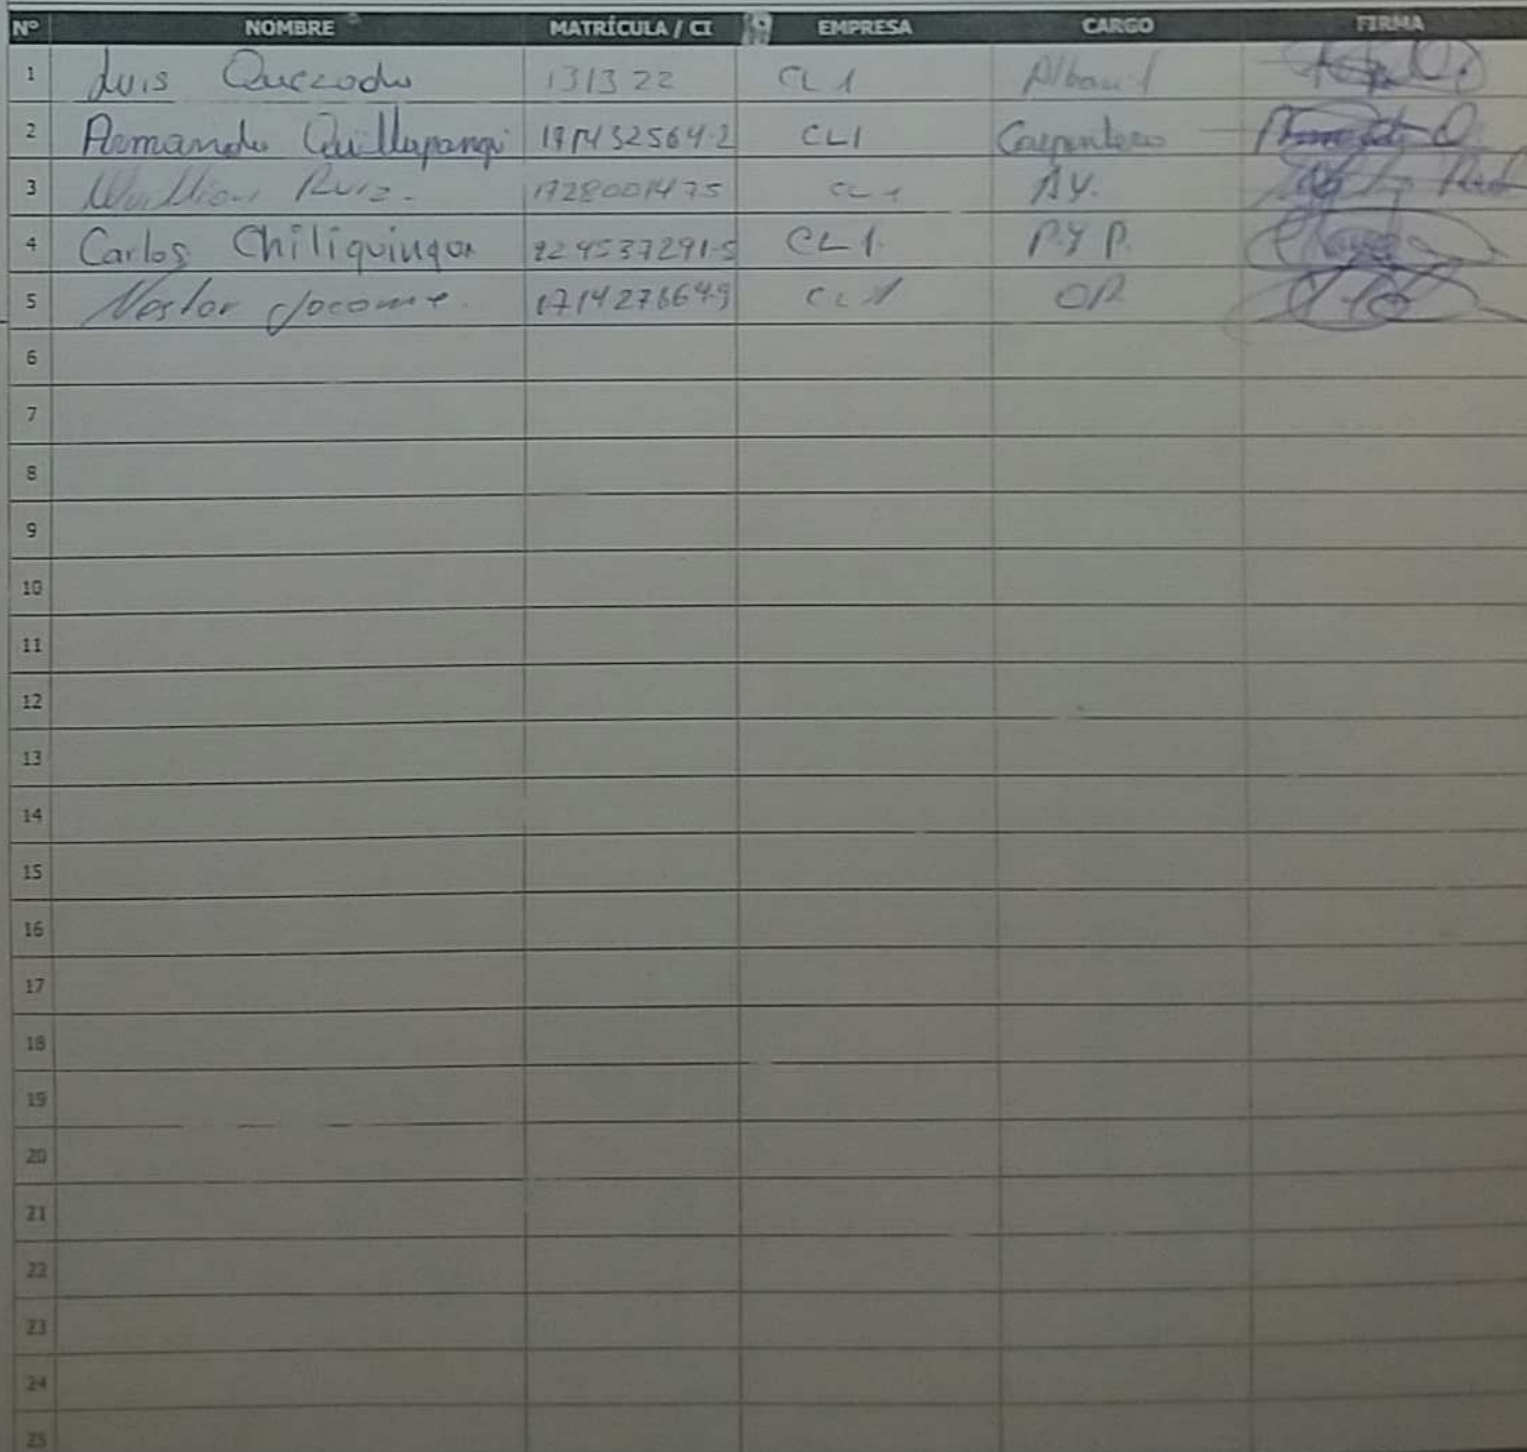 Nº NOMBRE MATRÍCULA / CI EMPRESA CARGO FIRMA
1 Luis Quezada 131322 CL1 Albañil
2 Armando Quillupangi 171432564-2 CL1 Carpintero
3 Ruiz. 1728001475 CL1 AY.
4 Carlos Chiliquinga CL1 P.Y P.
5 Nestor Jocome. 171427664-9 CL1 OP.
6
7
8
9
10
11
12
13
14
15
16
17
18
19
20
21
22
23
24
25